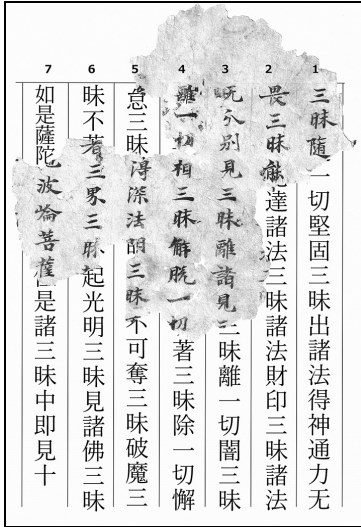 1 三昧隨一切堅固三昧出諸法得神通力无
2 畏三昧達諸法三昧諸法財印三昧諸法
3 无分別見三昧離諸見三昧離一切闇三昧
4 離一切相三昧解脫一切著三昧除一切懈
5 怠三昧得深法明三昧不可奪三昧破魔三
6 昧不著三界三昧起光明三昧見諸佛三昧
7 如是薩陀波崙菩薩住是諸三昧中即見十